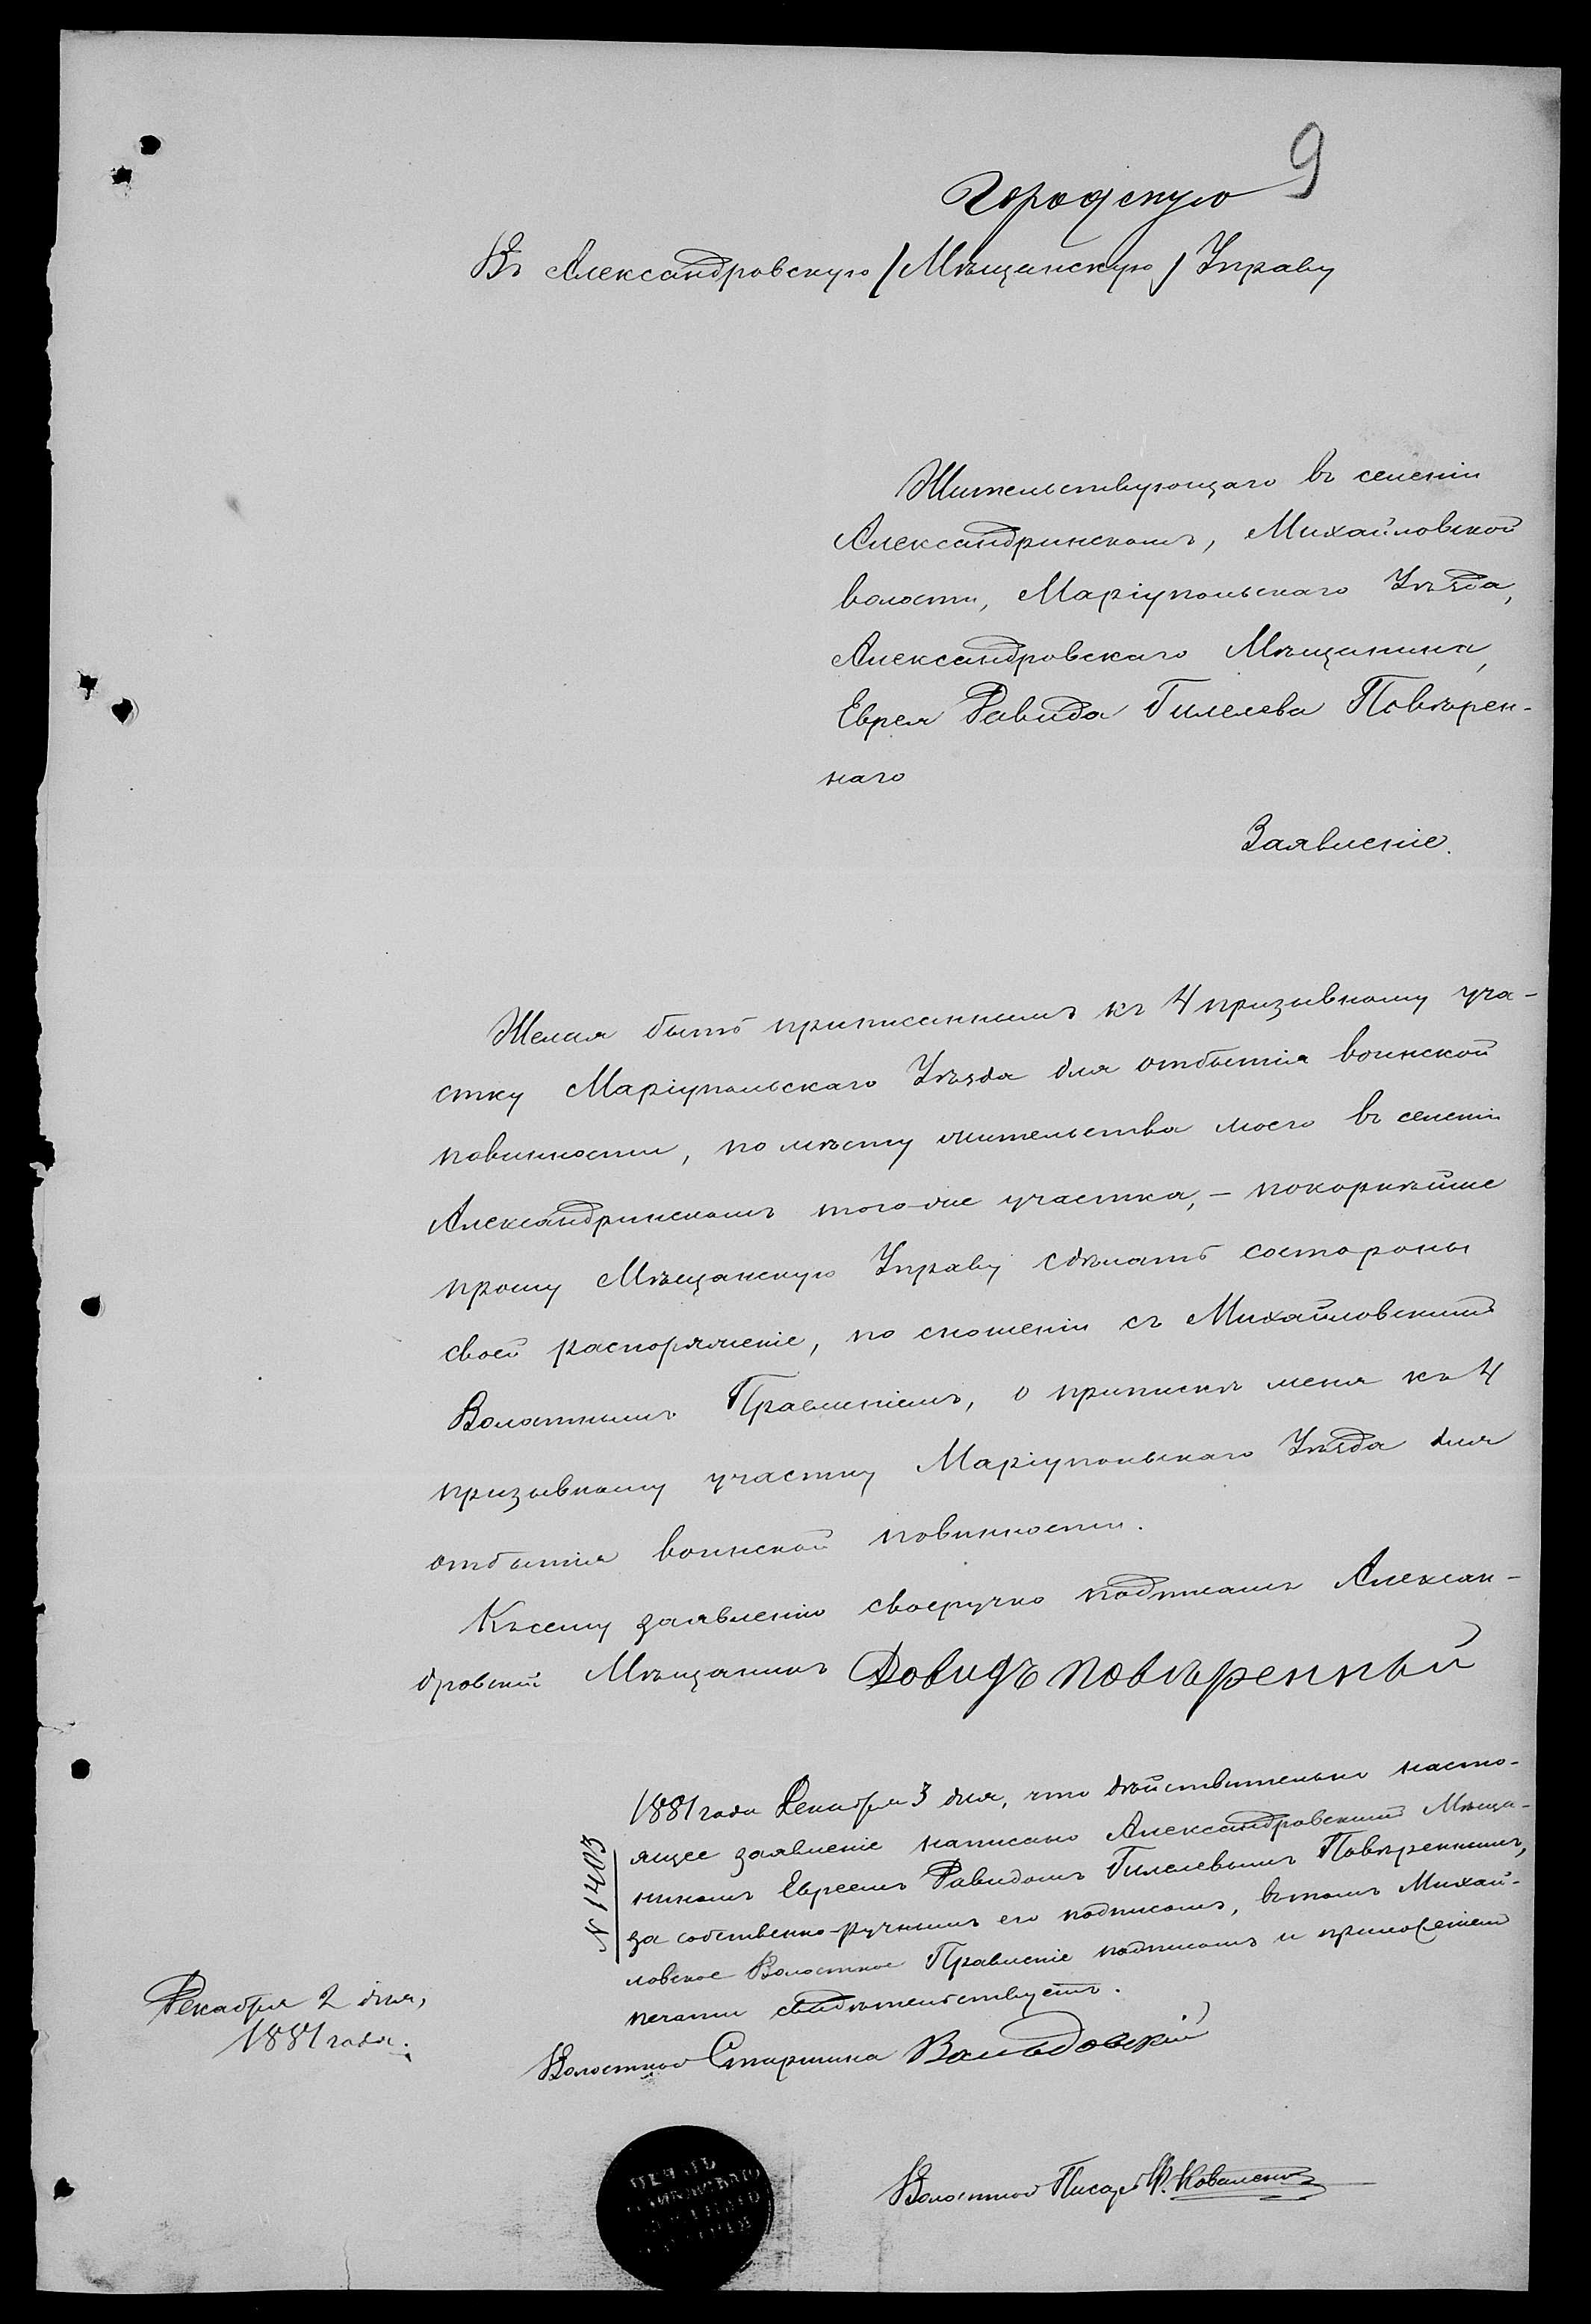 9
Городскую
Въ Александровскую /Мѣщанскую/ Управу
Жительствующаго въ селеніи
Александринскомъ, Михайловской
волости, Маріупольскаго Уѣзда,
Александровскаго Мѣщанина,
Еврея Давида Гилелева Повѣрен-
наго
Заявленіе.
Желая быть приписаннымъ къ 4 призывному уча-
стку Маріупольскаго Уѣзда для отбытія воинской
повинности, по мѣсту жительства моего въ селеніи
Александринскомъ того-же участка, - покорнѣйше
прошу Мѣщанскую Управу сдѣлать состороны
своей распоряженіе, по сношеніи съ Михайловскимъ
Волостнымъ Правленіемъ, о припискѣ меня къ 4
призывному участку Маріупольскаго Уѣзда для
отбытія воинской повинности.
Къ сему заявленію своеручно подписалъ Алексан-
дровскій Мѣщанинъ Довидъ повѣренный
1881 года Декабря 3 дня, что дѣйствительно насто-
ящее заявленіе написано Александровскимъ Мѣща-
ниномъ Евреемъ Давидомъ Гилелевымъ Повѣреннымъ,
за собственно-ручнымъ его подписомъ, въ томъ Михай-
ловское Волостное Правленіе подписомъ и приложеніемъ
печати свидѣтельствуетъ.
N 1403
Декабря 2 дня,
1881 года.
Волостной Старшина
Волостной Писарь Ф. Коваленко
ПЕЧАТЬ